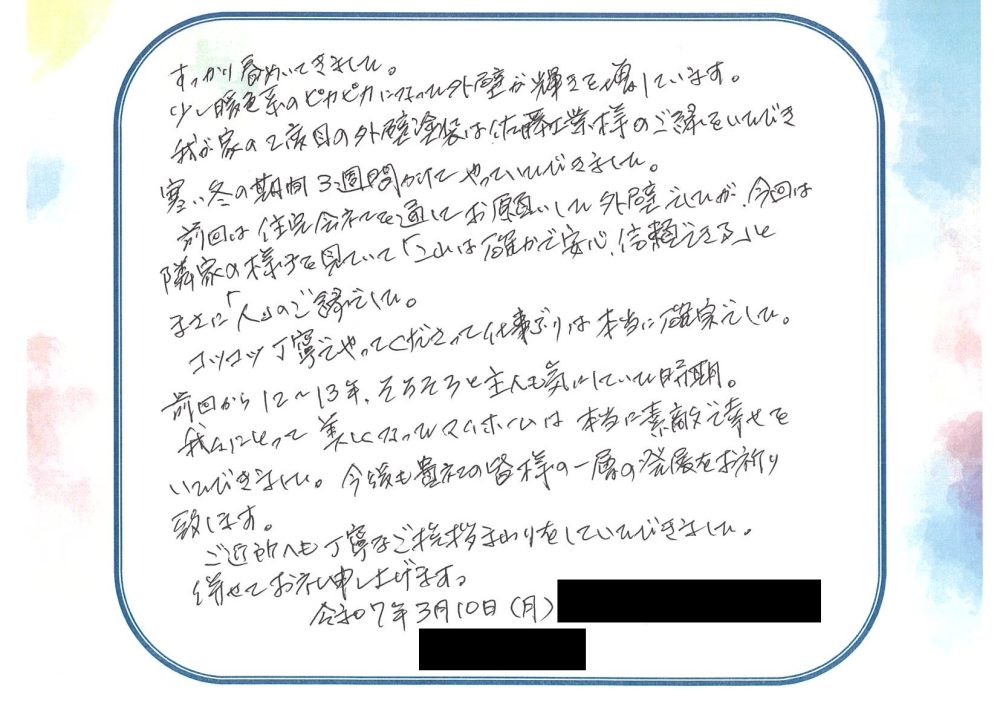 すっかり春めいてきました。
少し暖色系のピカピカになった外壁が輝きを増しています。
我が家の2度目の外壁塗装は佐藤工業様のご縁をいただき
寒い冬の期間3週間かけてやっていただきました。
前回は住宅会社を通してお願いした外壁でしたが、今回は
隣家の様子を見ていて「ここは確かで安心、信頼できる」と
まさに「人」のご縁でした。
コツコツ丁寧にやってくださって仕事ぶりは本当に確実でした。
前回から12〜13年、そろそろと主人も気にしていた時期。
我々にとって美しくなったマイホームは本当に素敵で幸せを
いただきました。今後も貴社の皆様の一層の発展をお祈り
致します。
ご近所へも丁寧なご挨拶まわりをしていただきました。
併せてお礼申し上げます。
令和7年3月10日(月)